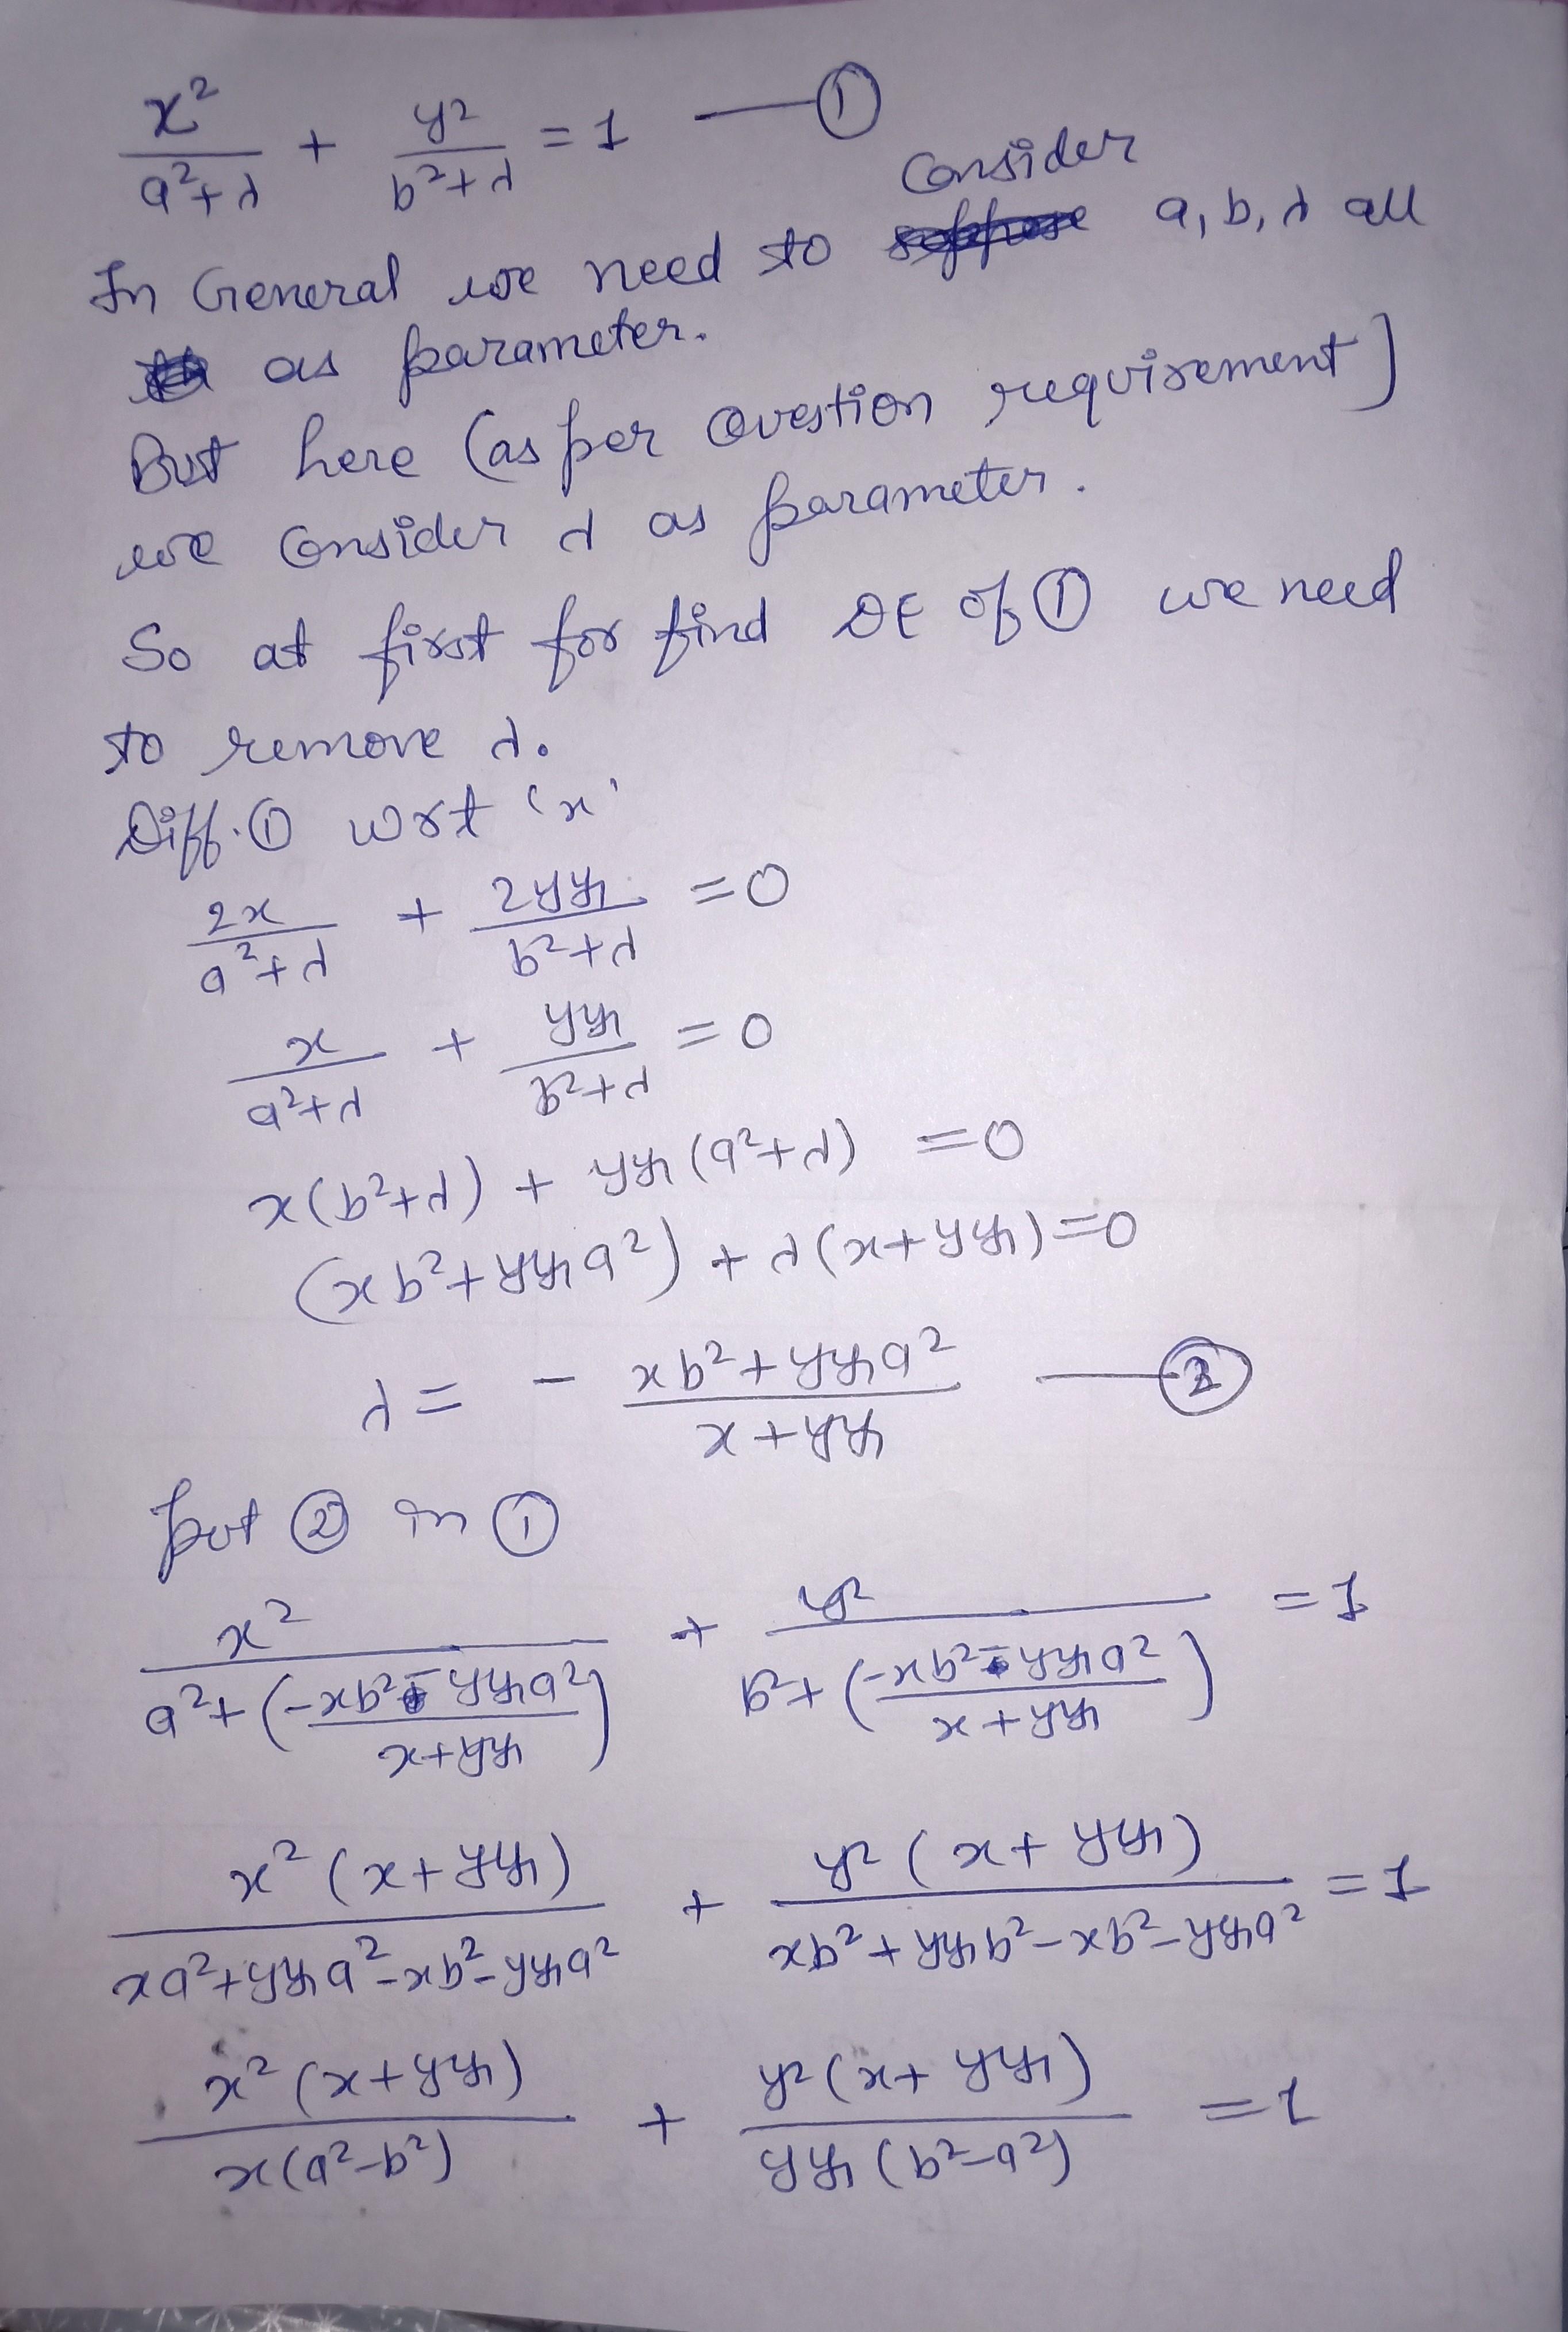 x²/(a²+λ) + y²/(b²+λ) = 1 —①
In General we need to Consider a, b, λ all
as parameter.
But here (as per Question requirement)
we Consider λ as parameter.
So at first for find DE of ① we need
to remove λ.
Diff. ① wrt 'x'
2x/(a²+λ) + 2yy₁/(b²+λ) = 0
x/(a²+λ) + yy₁/(b²+λ) = 0
x(b²+λ) + yy₁(a²+λ) = 0
(xb²+yy₁a²) + λ(x+yy₁) = 0
λ = - (xb²+yy₁a²)/(x+yy₁) —②
put ② in ①
x²/(a²+((-xb²-yy₁a²)/(x+yy₁))) + y²/(b²+((-xb²-yy₁a²)/(x+yy₁))) = 1
x²(x+yy₁)/(xa²+yy₁a²-xb²-yy₁a²) + y²(x+yy₁)/(xb²+yy₁b²-xb²-yy₁a²) = 1
x²(x+yy₁)/(x(a²-b²)) + y²(x+yy₁)/(yy₁(b²-a²)) = 1